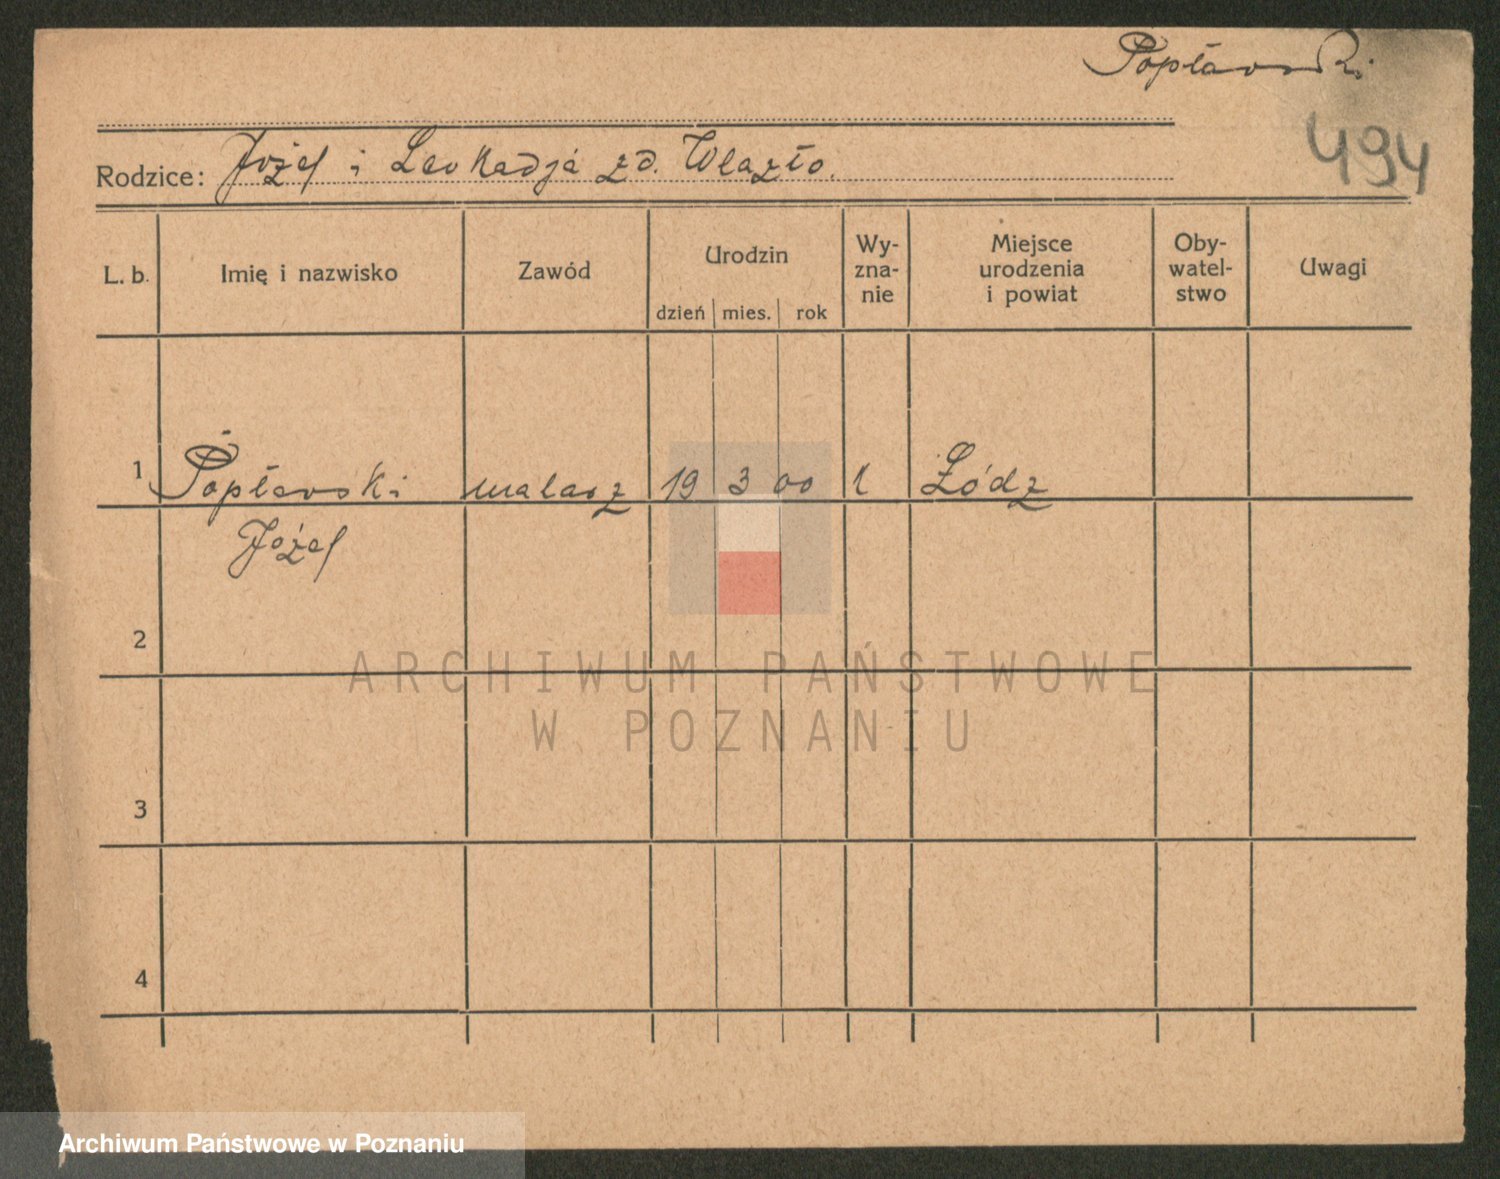 Popławski
494
Rodzice: Józef i Leokadja zd. Wlazło.
L. b. Imię i nazwisko Zawód Urodzin dzień mies. rok Wy-zna-nie Miejsce urodzenia i powiat Oby-watel-stwo Uwagi
1 Popławski malarz 19 3 00 k Łódz
Józef
2
3
4
ARCHIWUM PAŃSTWOWE
W POZNANIU
Archiwum Państwowe w Poznaniu